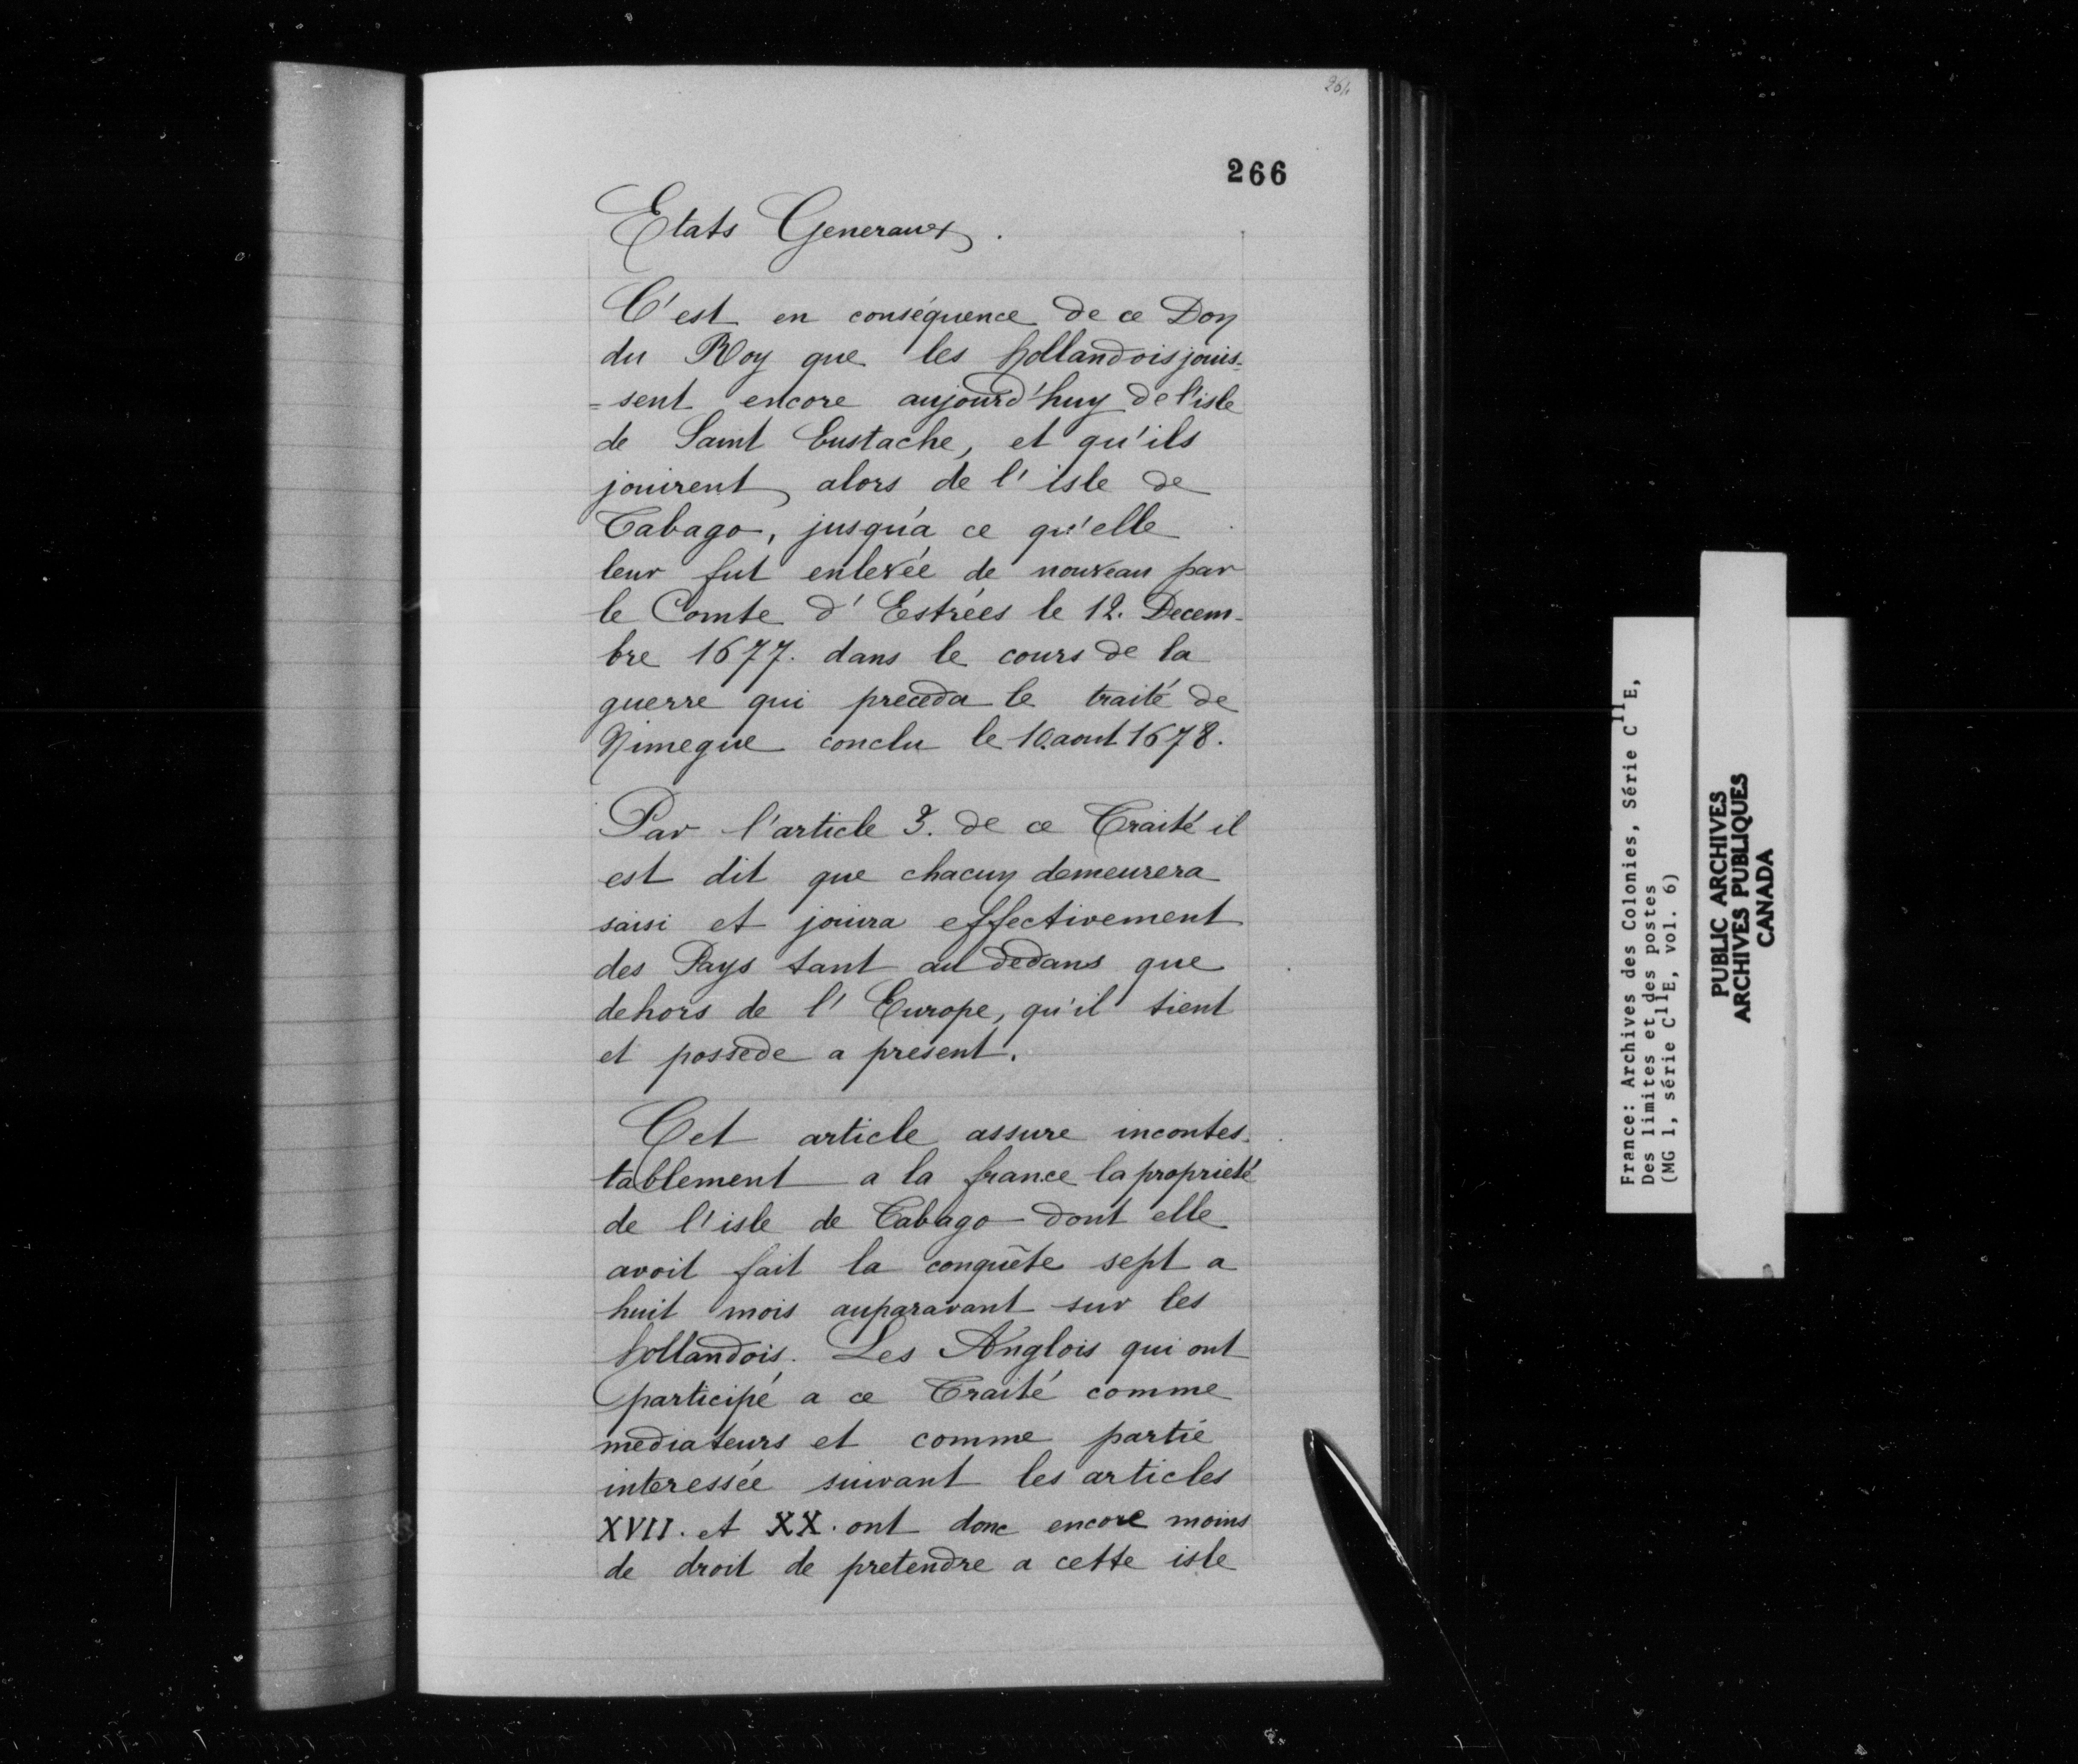 264
266
Etats Generaux.
C'est en conséquence de ce Don
du Roy que les hollandois jouis=
=sent encore aujourd'huy de l'isle
de Saint Eustache, et qu'ils
jouirent alors de l'isle de
Tabago, jusqu'a ce qu'elle
leur fut enlevée de nouveau par
le Comte d'Estrées le 12. Decem-
bre 1677. dans le cours de la
guerre qui preceda le traité de
Nimegue conclu le 10. aout 1678.
Par l'article 3. de ce Traité il
est dit que chacun demeurera
saisi et jouira effectivement
des Pays tant au dedans que
dehors de l'Europe, qu'il tient
et possede a present.
Cet article assure incontes-
tablement a la france la proprieté
de l'isle de Tabago dont elle
avoit fait la conquête sept a
huit mois auparavant sur les
hollandois. Les Anglois qui ont
participé a ce Traité comme
mediateurs et comme partie
interessée suivant les articles
XVII. et XX. ont donc encore moins
de droit de pretendre a cette isle
France: Archives des Colonies, Série C11E,
Des limites et des postes
(MG 1, série C11E, vol. 6)
PUBLIC ARCHIVES
ARCHIVES PUBLIQUES
CANADA